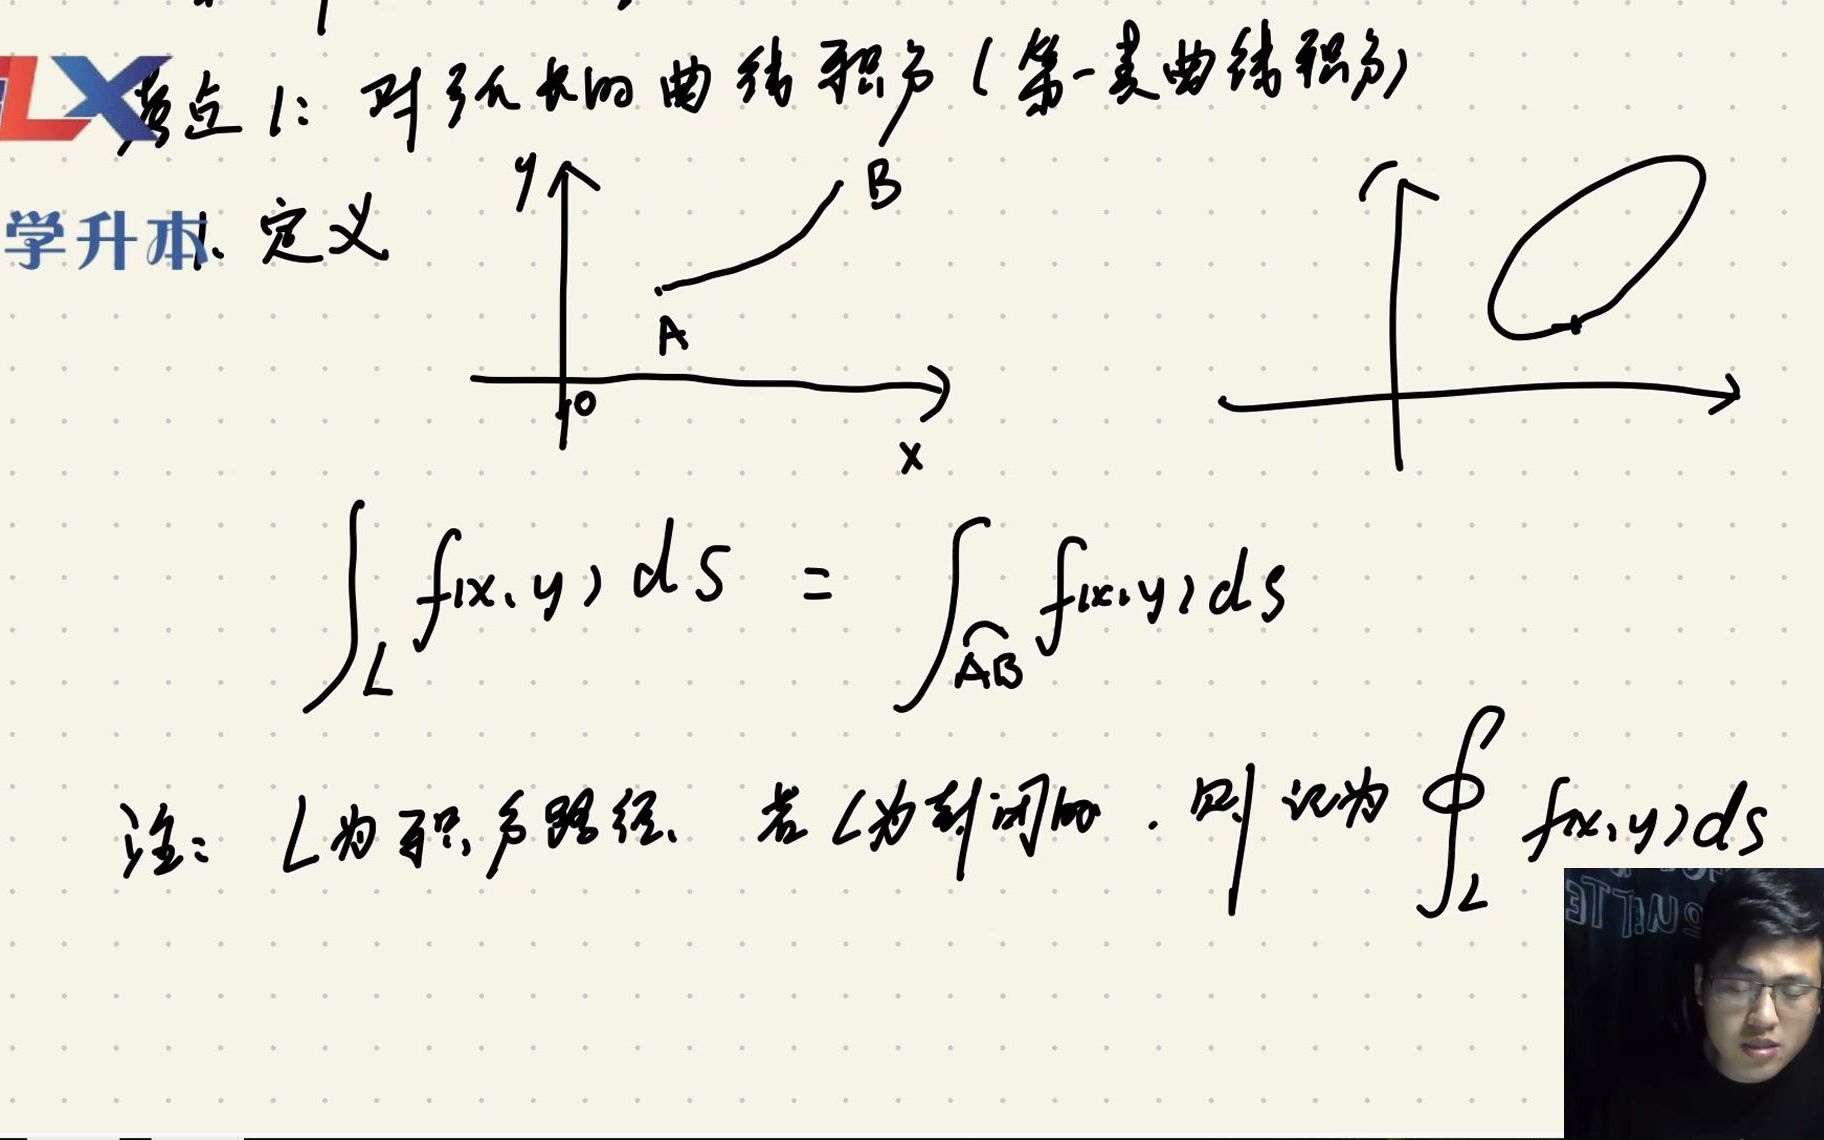 LX 考点1: 对弧长的曲线积分(第一类曲线积分)
学升本 1. 定义
y
B
A
O
x
∫_L f(x, y) ds = ∫_{\overset{⌢}{AB}} f(x, y) ds
注: L为积分路径. 若L为封闭的. 则记为 ∮_L f(x, y) ds